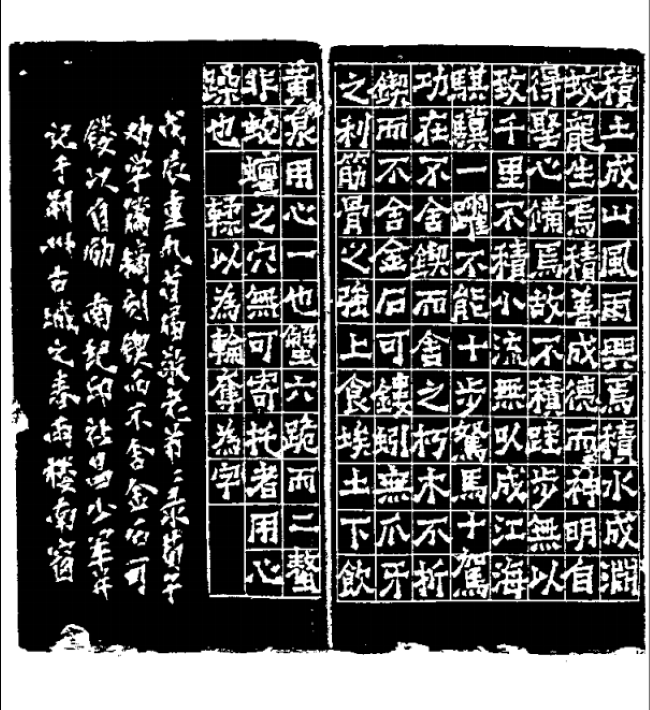 積土成山風雨興焉積水成淵
蛟龍生焉積善成德而神明自
得聖心備焉故不積跬步無以
致千里不積小流無以成江海
騏驥一躍不能十步駑馬十駕
功在不舍鍥而舍之朽木不折
鍥而不舍金石可鏤蚓無爪牙
之利筋骨之強上食埃土下飲
黃泉用心一也蟹六跪而二螯
非蛇蟺之穴無可寄托者用心
躁也 輮以為輪奪為字
戊辰重九首届敬老节录荀子
劝学篇刻锲而不舍金石可
镂以自励 南纪印社昌少军并
记于荆州古城之春雨楼南窗